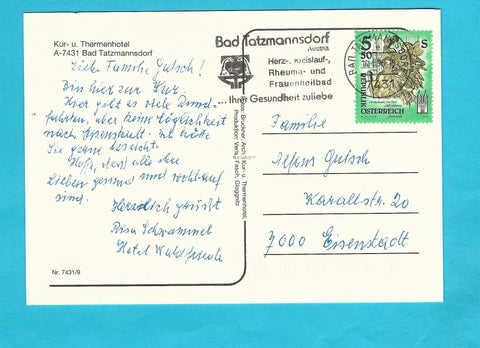 Kur- u. Thermenhotel
A-7431 Bad Tatzmannsdorf
Liebe Familie Gutsch!
Bin hier zur Kur.
Hier gibt es viele Rund-
fahrten, aber keine Möglichkeit
nach Eisenstadt. Hätte
Sie gerne besucht.
Hoffe, daß alle Ihre
Lieben gesund und wohlauf
sind.
Herzlich grüßt
Risa Schwammel
Hotel Waldfriede
Nr. 7431/9
Kur- u. Thermenhotel;
Produktion: Verlag Fesch, Gloggnitz
Bad Tatzmannsdorf
Austria
Herz-, Kreislauf-,
Rheuma- und
Frauenheilbad
...Ihrer Gesundheit zuliebe
BAD TATZMANNSDORF
7431
5 S
50
REPUBLIK
ÖSTERREICH
Familie
Alfons Gutsch
Karallstr. 20
7000 Eisenstadt